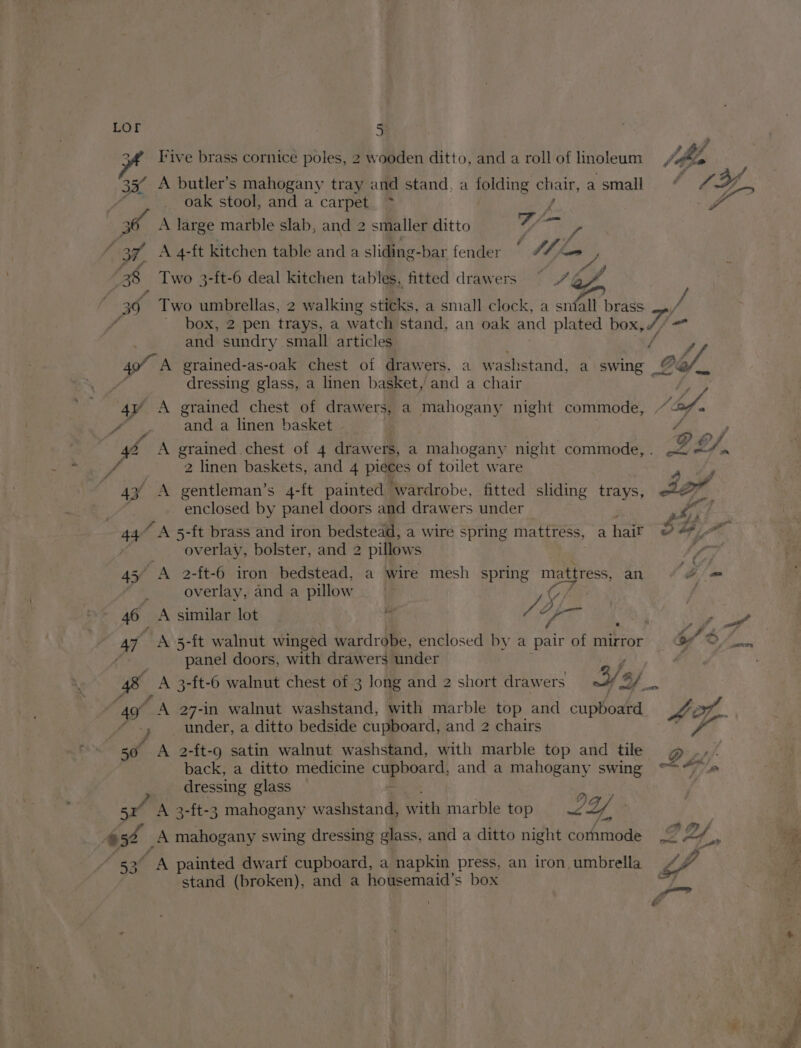 LOT 5
34 Five brass cornice poles, 2 wooden ditto, and a roll of linoleum
35 A butler's mahogany tray and stand, a folding chair, a small
oak stool, and a carpet
36 A large marble slab, and 2 smaller ditto
37 A 4-ft kitchen table and a sliding-bar fender
38 Two 3-ft-6 deal kitchen tables, fitted drawers
39 Two umbrellas, 2 walking sticks, a small clock, a small brass
box, 2 pen trays, a watch stand, an oak and plated box,
and sundry small articles
40 A grained-as-oak chest of drawers, a washstand, a swing
dressing glass, a linen basket, and a chair
41 A grained chest of drawers, a mahogany night commode,
and a linen basket
42 A grained chest of 4 drawers, a mahogany night commode,
2 linen baskets, and 4 pieces of toilet ware
43 A gentleman's 4-ft painted wardrobe, fitted sliding trays,
enclosed by panel doors and drawers under
44 A 5-ft brass and iron bedstead, a wire spring mattress, a hair
overlay, bolster, and 2 pillows
45 A 2-ft-6 iron bedstead, a wire mesh spring mattress, an
overlay, and a pillow
46 A similar lot
47 A 5-ft walnut winged wardrobe, enclosed by a pair of mirror
panel doors, with drawers under
48 A 3-ft-6 walnut chest of 3 long and 2 short drawers
49 A 27-in walnut washstand, with marble top and cupboard
under, a ditto bedside cupboard, and 2 chairs
50 A 2-ft-9 satin walnut washstand, with marble top and tile
back, a ditto medicine cupboard, and a mahogany swing
dressing glass
51 A 3-ft-3 mahogany washstand, with marble top
52 A mahogany swing dressing glass, and a ditto night commode
53 A painted dwarf cupboard, a napkin press, an iron umbrella
stand (broken), and a housemaid's box